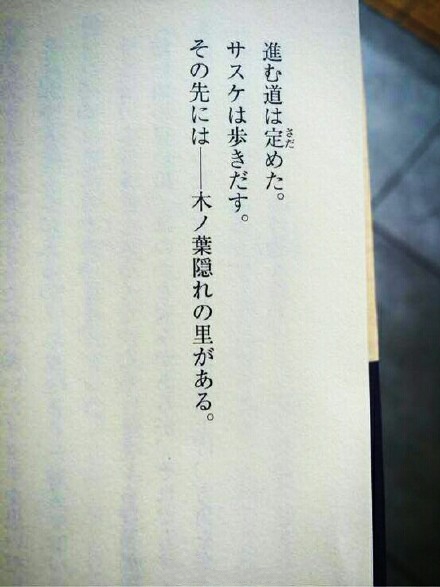 進む道は定めた。
サスケは歩きだす。
その先には――木ノ葉隠れの里がある。